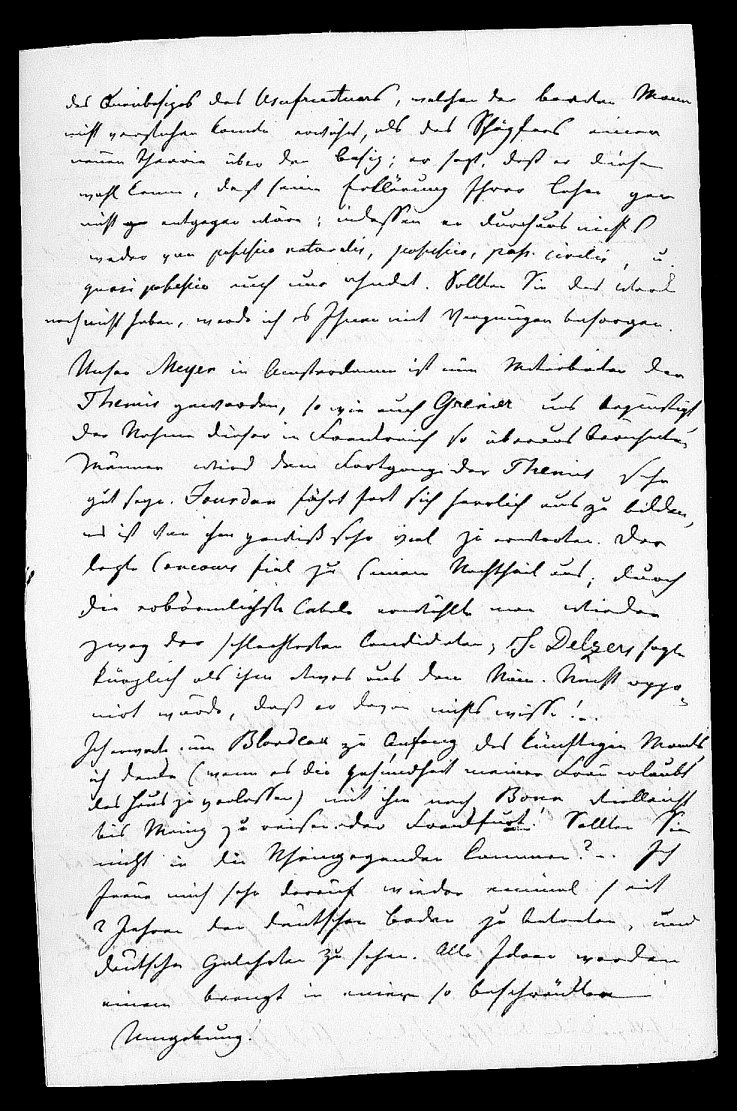 des Quasibesizes des Usufructuars, welchen der beredte Mann
nicht verstehen konnte erwähnt, als des Schöpfers einer
neuen Theorie über den Besiz; er sagt, daß er diesen
wohl kenne, daß seine Erklärung Ihrer Lehre gar
nicht entgegen wäre; indessen er durchaus nichts
weder von possessio naturalis, possessio, poss. civilis, u.
quasi possessio auch nur ahndet. Sollten Sie das Werk
noch nicht haben, werde ich es Ihnen mit Vergnügen besorgen.
Unser Meyer in Amsterdam ist nun Mitarbeiter der
Themis geworden, so wie auch Grenier
der Nahme dieser in Frankreich so überaus berühmten
Männer wird dem Fortgange der Themis sehr
gut seyn. Jourdan fährt fort sich herrlich aus zu bilden,
es ist von ihm gewiß sehr viel zu erwarten. Der
lezte Concours fiel zu seinem Nachtheil aus; durch
die erbärmlichste Cabale erwählte man wieder
zwey der schlechtesten Candidaten, H. Delzers sagte
kürzlich als ihm etwas aus dem Röm. Recht oppo-
nirt wurde, daß er davon nichts wisse!..
Ich erwarte nun Blondeau zu Anfang des künftigen Monats,
ich denke (wenn es die Gesundheit meiner Frau erlaubt
das Haus zu verlassen) mit ihm nach Bonn vielleicht
bis Mainz zu reisen oder Frankfurt! Sollten Sie
nicht in die Rheingegenden kommen?.. Ich
freue mich sehr darauf wieder einmal seit
2 Jahren den deutschen Boden zu betreten, und
deutsche Gelehrten zu sehen. Alle Ideen werden
einem beengt in einer so beschränkten
Umgebung!